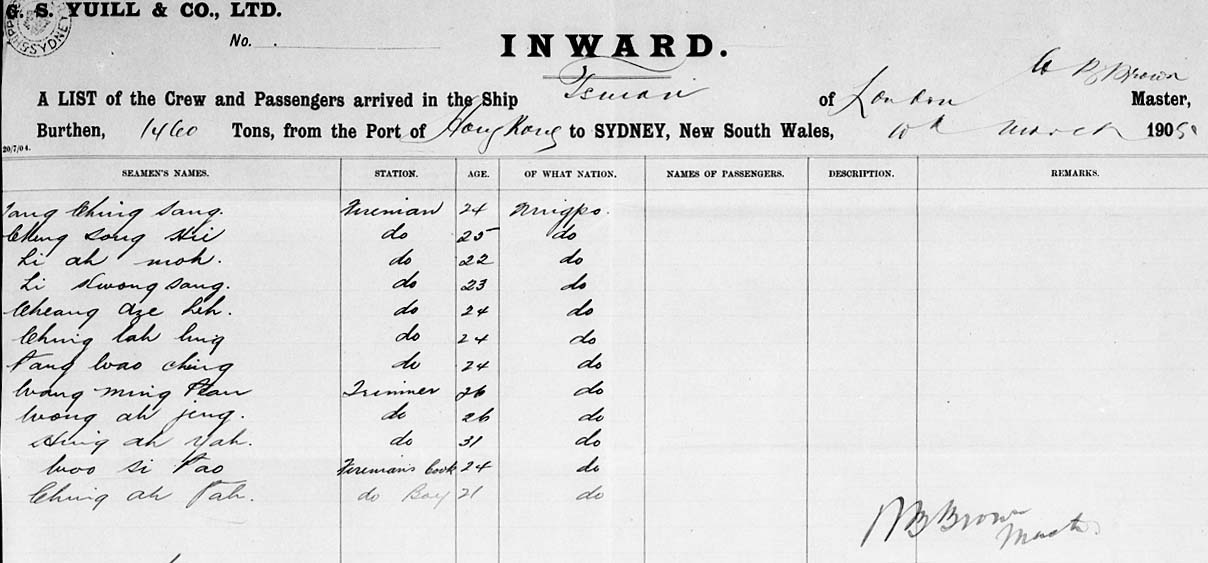 G. S. YUILL & CO., LTD.
SHIPP SYDNEY
No.
INWARD.
A LIST of the Crew and Passengers arrived in the Ship Tsinan of London B Brown Master,
Burthen, 1460 Tons, from the Port of Hong Kong to SYDNEY, New South Wales, 10th March 1905
20/7/04.
SEAMEN'S NAMES. STATION. AGE. OF WHAT NATION. NAMES OF PASSENGERS. DESCRIPTION. REMARKS.
Tang Ching Sang. Fireman 24 Ningpo.
Ching Song Hie do 25 do
Li ah moh. do 22 do
Li Kwong Sang. do 23 do
Cheang Aze Leh. do 24 do
Ching lah ling do 24 do
Tang Wao Ching do 24 do
Wang ming Trimmer 26 do
Wong ah jeng. do 26 do
Hing ah Yah. do 31 do
Woo Si Fao Fireman's Cook 24 do
Ching ah Fah. do Boy 21 do
B Brown
Master